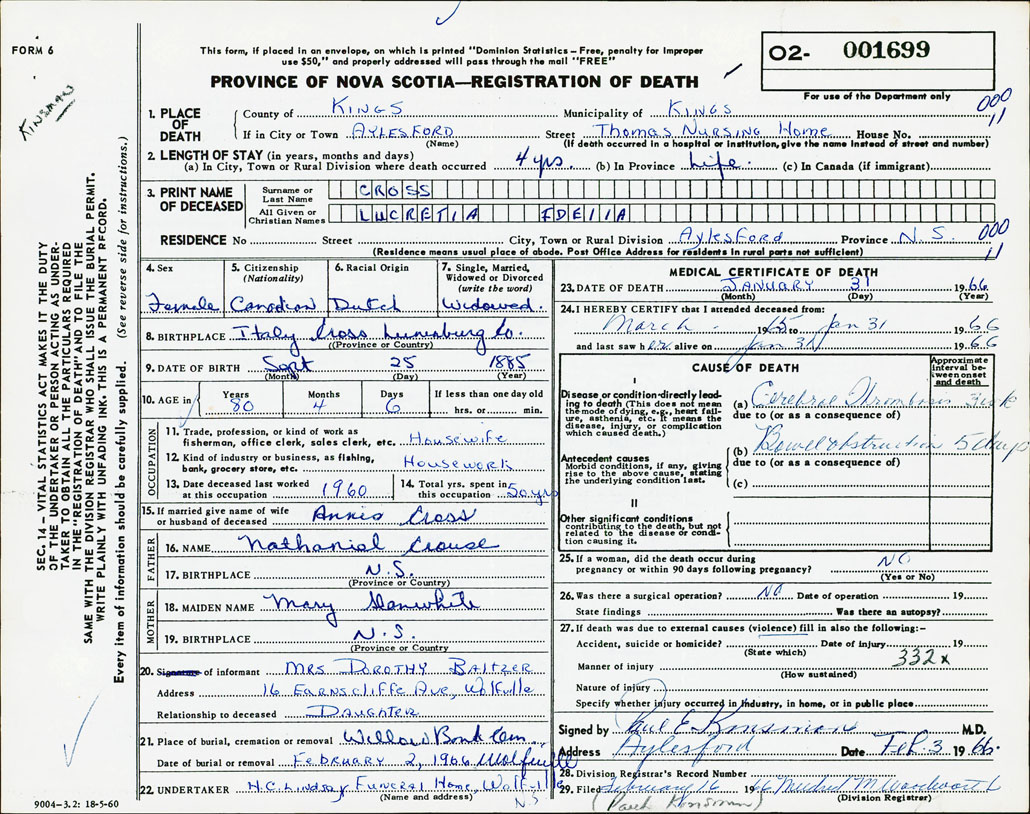 FORM 6
This form, if placed in an envelope, on which is printed "Dominion Statistics – Free, penalty for improper
use $50," and properly addressed will pass through the mail "FREE"
PROVINCE OF NOVA SCOTIA—REGISTRATION OF DEATH
02- 001699
For use of the Department only
KINSMAN
000
11
1. PLACE OF DEATH
County of KINGS Municipality of KINGS
If in City or Town AYLESFORD Street Thomas Nursing Home House No.
(Name) (If death occurred in a hospital or institution, give the name instead of street and number)
2. LENGTH OF STAY (in years, months and days)
(a) In City, Town or Rural Division where death occurred 4 yrs. (b) In Province Life. (c) In Canada (if immigrant)
3. PRINT NAME OF DECEASED
Surname or Last Name CROSS
All Given or Christian Names LUCRETIA IDELLA
000
11
RESIDENCE No Street City, Town or Rural Division Aylesford Province N.S.
(Residence means usual place of abode. Post Office Address for residents in rural parts not sufficient)
4. Sex Female
5. Citizenship (Nationality) Canadian
6. Racial Origin Dutch
7. Single, Married, Widowed or Divorced (write the word) Widowed.
8. BIRTHPLACE Italy Cross Lunenburg Co.
(Province or Country)
9. DATE OF BIRTH Sept 25 1885
(Month) (Day) (Year)
10. AGE in Years 80 Months 4 Days 6 If less than one day old hrs. or min.
OCCUPATION
11. Trade, profession, or kind of work as
fisherman, office clerk, sales clerk, etc. Housewife
12. Kind of industry or business, as fishing,
bank, grocery store, etc. Housework
13. Date deceased last worked at this occupation 1960
14. Total yrs. spent in this occupation 50 yrs
15. If married give name of wife
or husband of deceased Annis Cross
FATHER
16. NAME Nathaniel Crouse
17. BIRTHPLACE N.S.
(Province or Country)
MOTHER
18. MAIDEN NAME Mary Slanwhite
19. BIRTHPLACE N.S.
(Province or Country
20. Signature of informant MRS DOROTHY BALTZER
Address 16 EARNSCLIFFE Ave, Wolfville
Relationship to deceased DAUGHTER
21. Place of burial, cremation or removal Willow Bank Cem.
Date of burial or removal FEBRUARY 2, 1966 Wolfville
22. UNDERTAKER H.C. Lindsay Funeral Home, Wolfville
(Name and address) N.S
9004–3.2: 18-5-60
MEDICAL CERTIFICATE OF DEATH
23. DATE OF DEATH JANUARY 31 1966
(Month) (Day) (Year)
24. I HEREBY CERTIFY that I attended deceased from:
March 1965 to Jan 31 1966
and last saw her alive on Jan 31 1966
CAUSE OF DEATH
Approximate interval between onset and death
Disease or condition directly leading to death (This does not mean the mode of dying, e.g., heart failure, asthenia, etc. It means the disease, injury, or complication which caused death.)
(a) Cerebral Thrombosis
due to (or as a consequence of)
Antecedent causes
Morbid conditions, if any, giving rise to the above cause, stating the underlying condition last.
(b) Bowel obstruction 5 days
due to (or as a consequence of)
(c)
II
Other significant conditions
contributing to the death, but not related to the disease or condition causing it.
25. If a woman, did the death occur during
pregnancy or within 90 days following pregnancy? NO
(Yes or No)
26. Was there a surgical operation? NO Date of operation 19
State findings Was there an autopsy?
27. If death was due to external causes (violence) fill in also the following:–
Accident, suicide or homicide? Date of injury 19
(State which)
332x
Manner of injury
(How sustained)
Nature of injury
Specify whether injury occurred in industry, in home, or in public place
Signed by Paul E Kinsman M.D.
Address Aylesford Date Feb. 3 1966.
28. Division Registrar's Record Number
29. Filed February 16 1966 Mildred M Woodworth
(Division Registrar)
Kinsman)
SEC. 14 – VITAL STATISTICS ACT MAKES IT THE DUTY
OF THE UNDERTAKER OR PERSON ACTING AS UNDER-
TAKER TO OBTAIN ALL THE PARTICULARS REQUIRED
IN THE "REGISTRATION OF DEATH" AND TO FILE THE
SAME WITH THE DIVISION REGISTRAR WHO SHALL ISSUE THE BURIAL PERMIT.
WRITE PLAINLY WITH UNFADING INK. THIS IS A PERMANENT RECORD.
Every item of information should be carefully supplied. (See reverse side for instructions.)